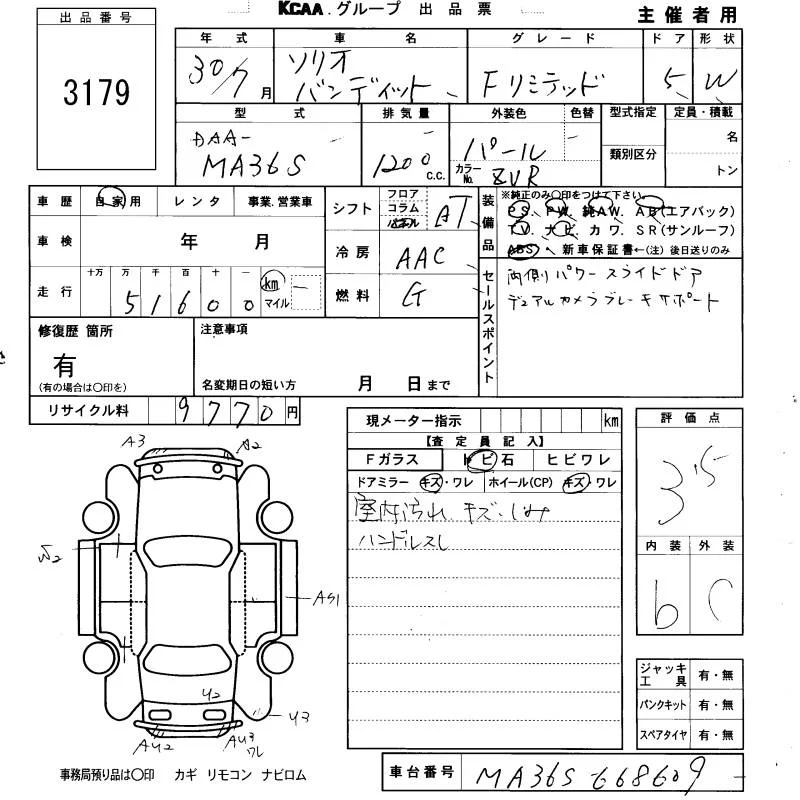 KCAA.グループ 出品票
主催者用
出品番号
3179
年式 車名 グレード ドア 形状
30/7月 ソリオ バンディット Fリミテッド 5 W
型式 排気量 外装色 色替 型式指定 定員・積載
DAA-
MA36S 1200 C.C. パール カラーNo. ZVR 類別区分 名
トン
車歴 自家用 レンタ 事業.営業車
シフト フロア コラム AT
装備品 ※純正のみ○印をつけて下さい
PS、PW、純AW、AB(エアバック)
TV、ナビ、カワ、SR(サンルーフ)
ABS、新車保証書←(注)後日送りのみ
車検 年 月
冷房 AAC
走行 十万 万 千 百 十 一
51600 km マイル
燃料 G
セールスポイント
両側パワースライドドア
デュアルカメラブレーキサポート
修復歴 箇所
有
(有の場合は○印を)
注意事項
名変期日の短い方 月 日まで
リサイクル料 9770円
現メーター指示 km
【査定員記入】
Fガラス トビ石 ヒビワレ
ドアミラー キズ・ワレ ホイール(CP) キズ・ワレ
室内汚れ キズ・しみ
ハンドルスレ
評価点
3.5
内装 外装
b C
A3 A2
W2
AS1
U2
U3
AU2 AU3
ワレ
ジャッキ工具 有・無
パンクキット 有・無
スペアタイヤ 有・無
事務局預り品は○印 カギ リモコン ナビロム
車台番号 MA36S-668609